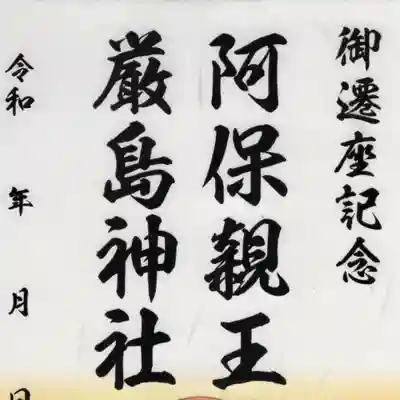 御遷座記念
阿保親王
厳島神社
令和 年 月 日